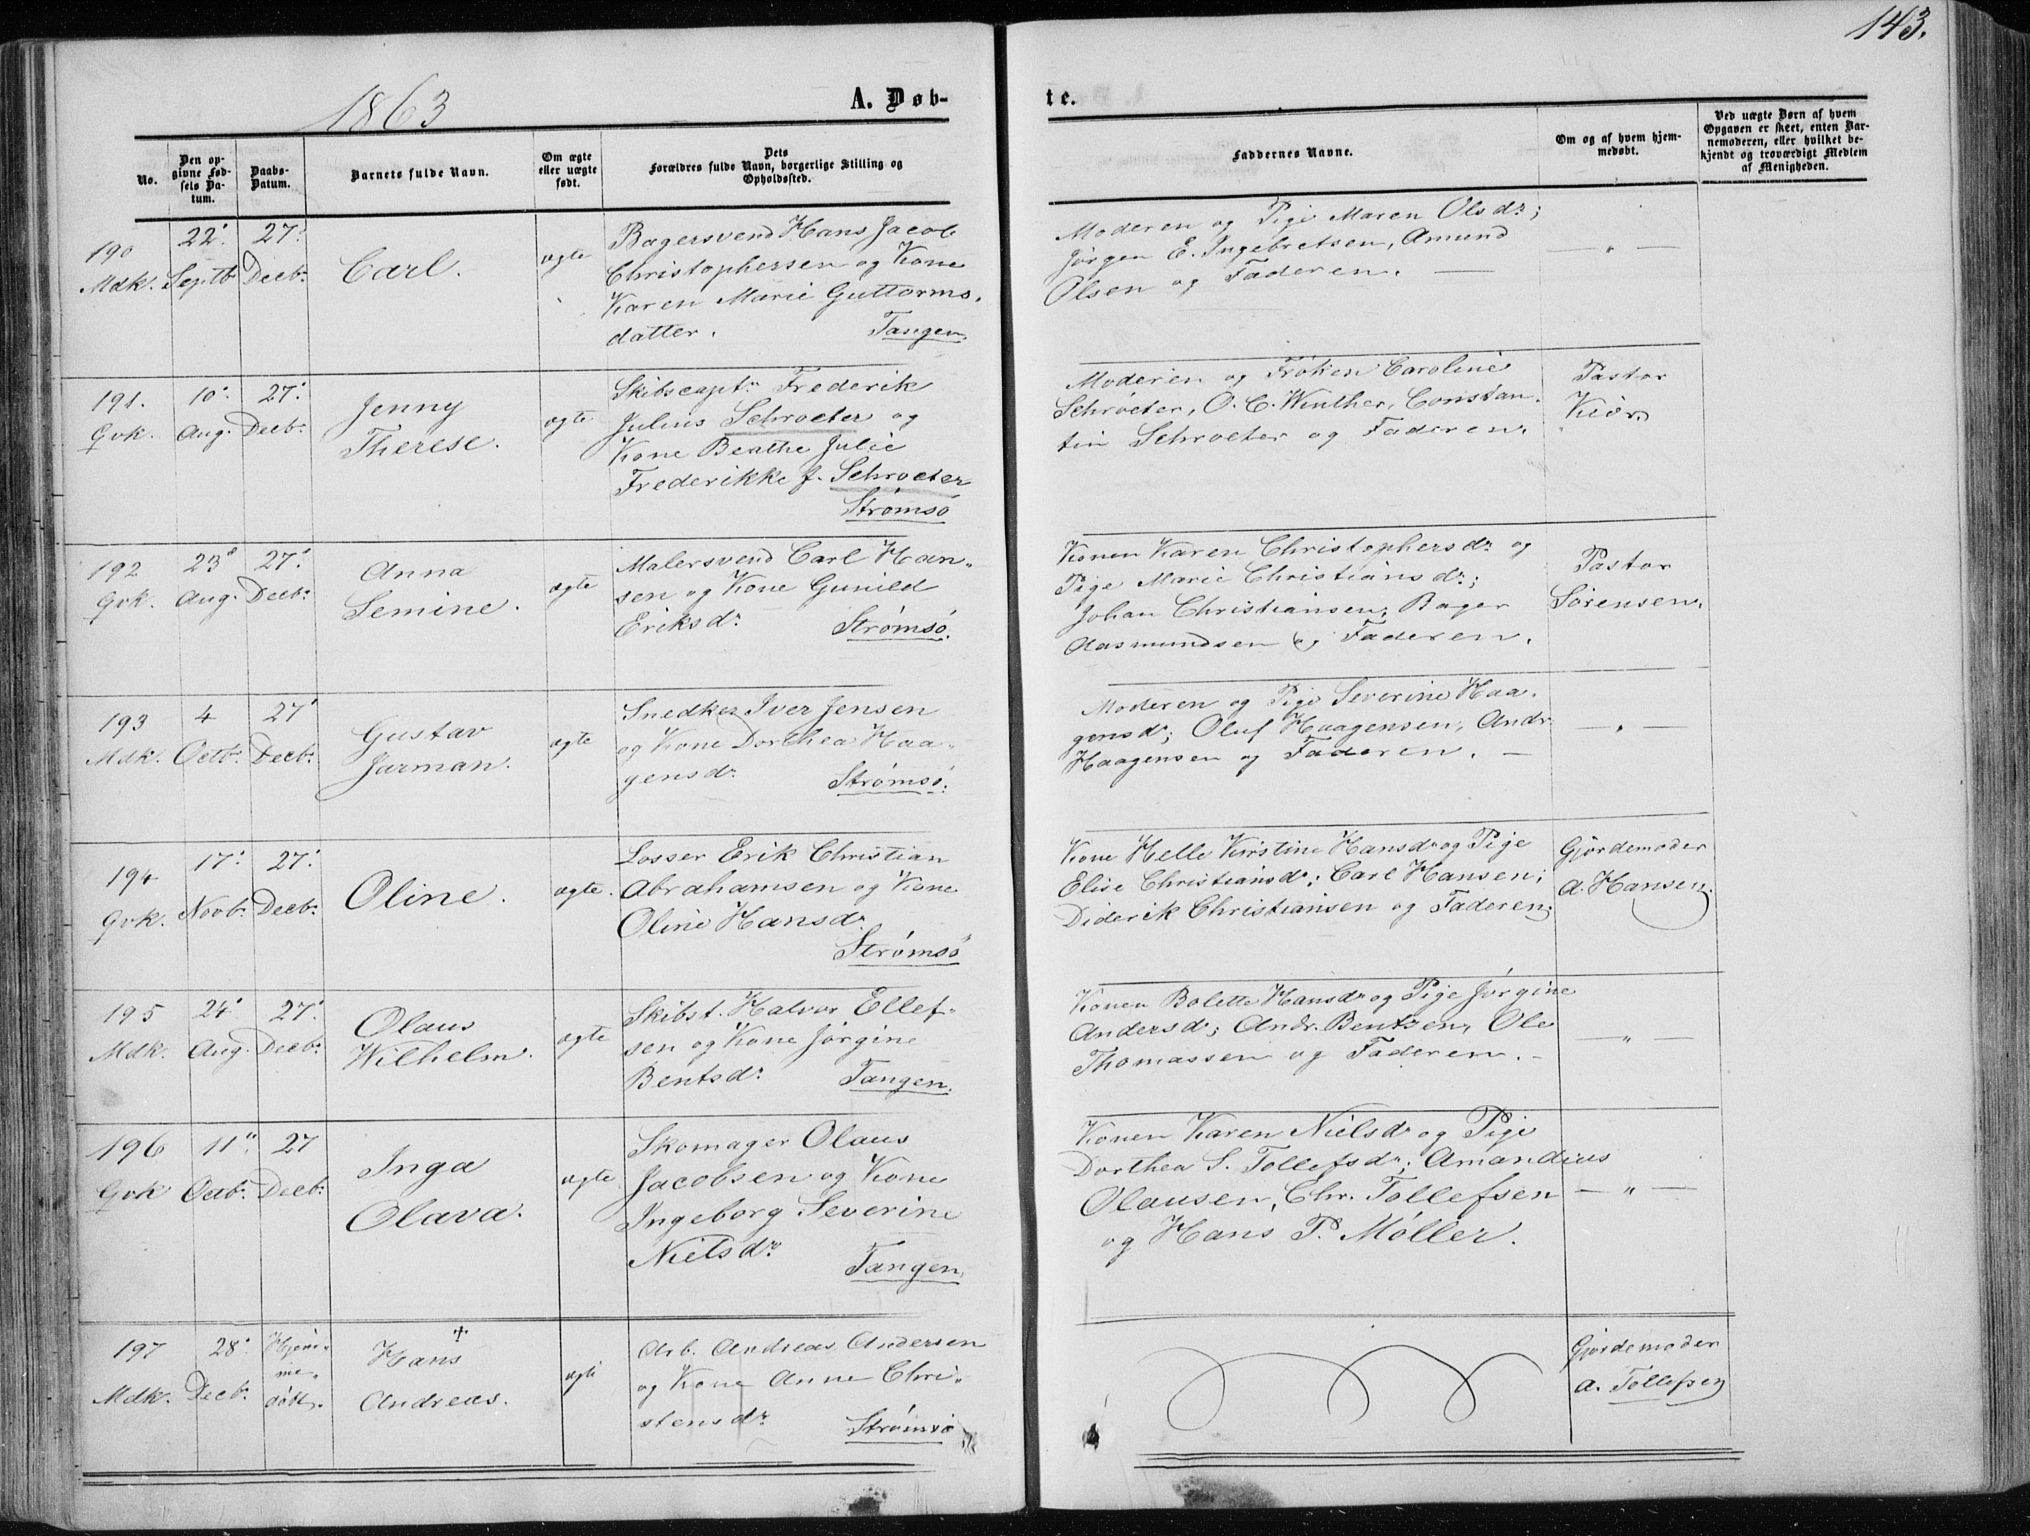 143.
1863
A. Døb-
te.
No.
Den op-
givne Fød-
sels Da-
tum.
Daabs-
Datum.
Barnets fulde Navn.
Om ægte
eller uægte
født.
Dets
Forældres fulde Navn, borgerlige Stilling og
Opholdssted.
Faddernes Navne.
Om og af hvem hjem-
medøbt.
Ved uægte Børn af hvem
Opgaven er skeet, enten Bar-
nemoderen, eller hvilket be-
kjendt og troværdigt Medlem
af Menigheden.
190
Mdk.
22'
Septb
27'
Decbr
Carl.
ægte
Bagersvend Hans Jacob
Christophersen og Kone
Karen Marie Guttorms-
datter. Tangen
Moderen og Pige Maren Olsdr;
Jørgen E. Ingebretsen, Amund
Olsen og Faderen. —
— „ —
191.
Qvk.
10'
Aug.
27'
Decbr
Jenny
Therese.
ægte
Skibscaptn Frederik
Julius Schroeter og
Kone Beathe Julie
Frederikke f. Schroeter
Strømsø
Moderen og Frøken Caroline
Schroeter, O. C. Winther, Constan-
tin Schroeter og Faderen.
Pastor
Kiær.
192
Qvk.
23'
Aug.
27'
Decbr
Anna
Semine.
ægte
Malersvend Carl Han-
sen og Kone Gunild
Eriksdr Strømsø.
Konen Karen Christophersdr og
Pige Marie Christiansdr;
Johan Christiansen, Bager
Aasmundsen og Faderen.
Pastor
Sørensen.
193
Mdk.
4
Octbr
27'
Decbr
Gustav
Jarman.
ægte
Snedker Iver Jensen
og Kone Dorthea Haa-
gensdr Strømsø.
Moderen og Pige Severine Haa-
gensdr; Oluf Haagensen, Andr.
Haagensen og Faderen. —
— „ —
194
Qvk.
17'
Novbr
27'
Decbr
Oline.
ægte.
Losser Erik Christian
Abrahamsen og Kone
Oline Hansdr
Strømsø
Kone Helle Kirstine Hansdr og Pige
Elise Christiansdr; Carl Hansen;
Diderik Christiansen og Faderen.
Gjordemoder
A. Hansen.
195
Mdk.
24'
Aug.
27'
Decbr
Olaus
Wilhelm.
ægte
Skibst. Halvor Ellef-
sen og Kone Jørgine
Bentsdr Tangen.
Konen Bolette Hansdr og Pige Jørgine
Andersdr; Andr. Bentzen, Ole
Thomassen og Faderen. —
— „ —
196
Qvk
11"
Octbr
27
Decbr
Inga
Olava.
ægte
Skomager Olaus
Jacobsen og Kone
Ingeborg Severine
Nielsdr
Tangen.
Konen Karen Nielsdr og Pige
Dorthea S. Tollefsdr; Amandius
Olausen, Chr. Tollefsen
og Hans P. Møller.
— „ —
197
Mdk.
28'
Decbr
Hjem-
me-
døbt.
Hans
Andreas.
ægte
Arb. Andreas Andersen
og Kone Anne Chri-
stensdr
Strømsø
Gjordemoder
A. Tollefsen